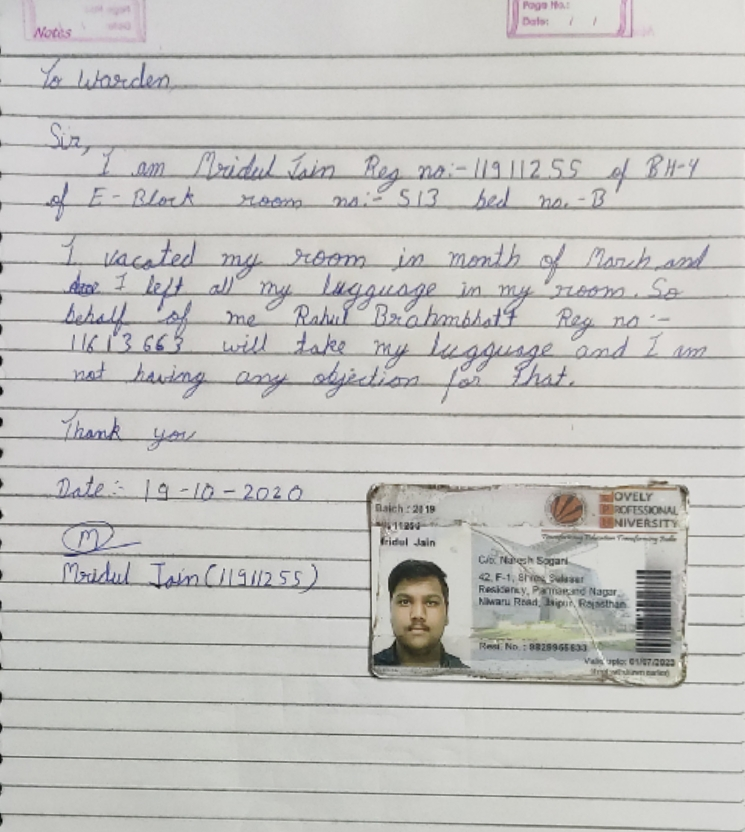 Notes
Page No.:
Date: / /
To Warden,
Sir,
I am Mridul Jain Reg no:- 11911255 of BH-4
of E-Block room no:- 513 bed no.-B
I vacated my room in month of March and
I left all my lugguage in my room. So
behalf of me Rahul Brahmbhatt Reg no:-
11613663 will take my lugguage and I am
not having any objection for that.
Thank you
Date:- 19-10-2020
M
Mridul Jain (11911255)
Batch : 2019
ridul Jain
OVELY
PROFESSIONAL
UNIVERSITY
Transforming Education Transforming India
C/o. Naresh Sogani
42, F-1, Shree Salasar
Residency, Parmanand Nagar,
Niwaru Road, Jaipur, Rajasthan
Resi. No. : 9829955633
Valid upto: 01/07/2023